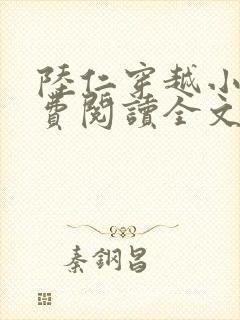 陸仁穿越小
費閱讀全文
秦鋼昌